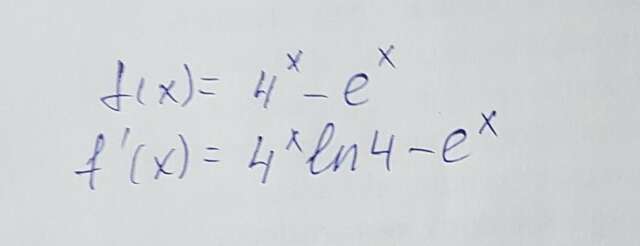 f(x) = 4^x - e^x
f'(x) = 4^x ln 4 - e^x